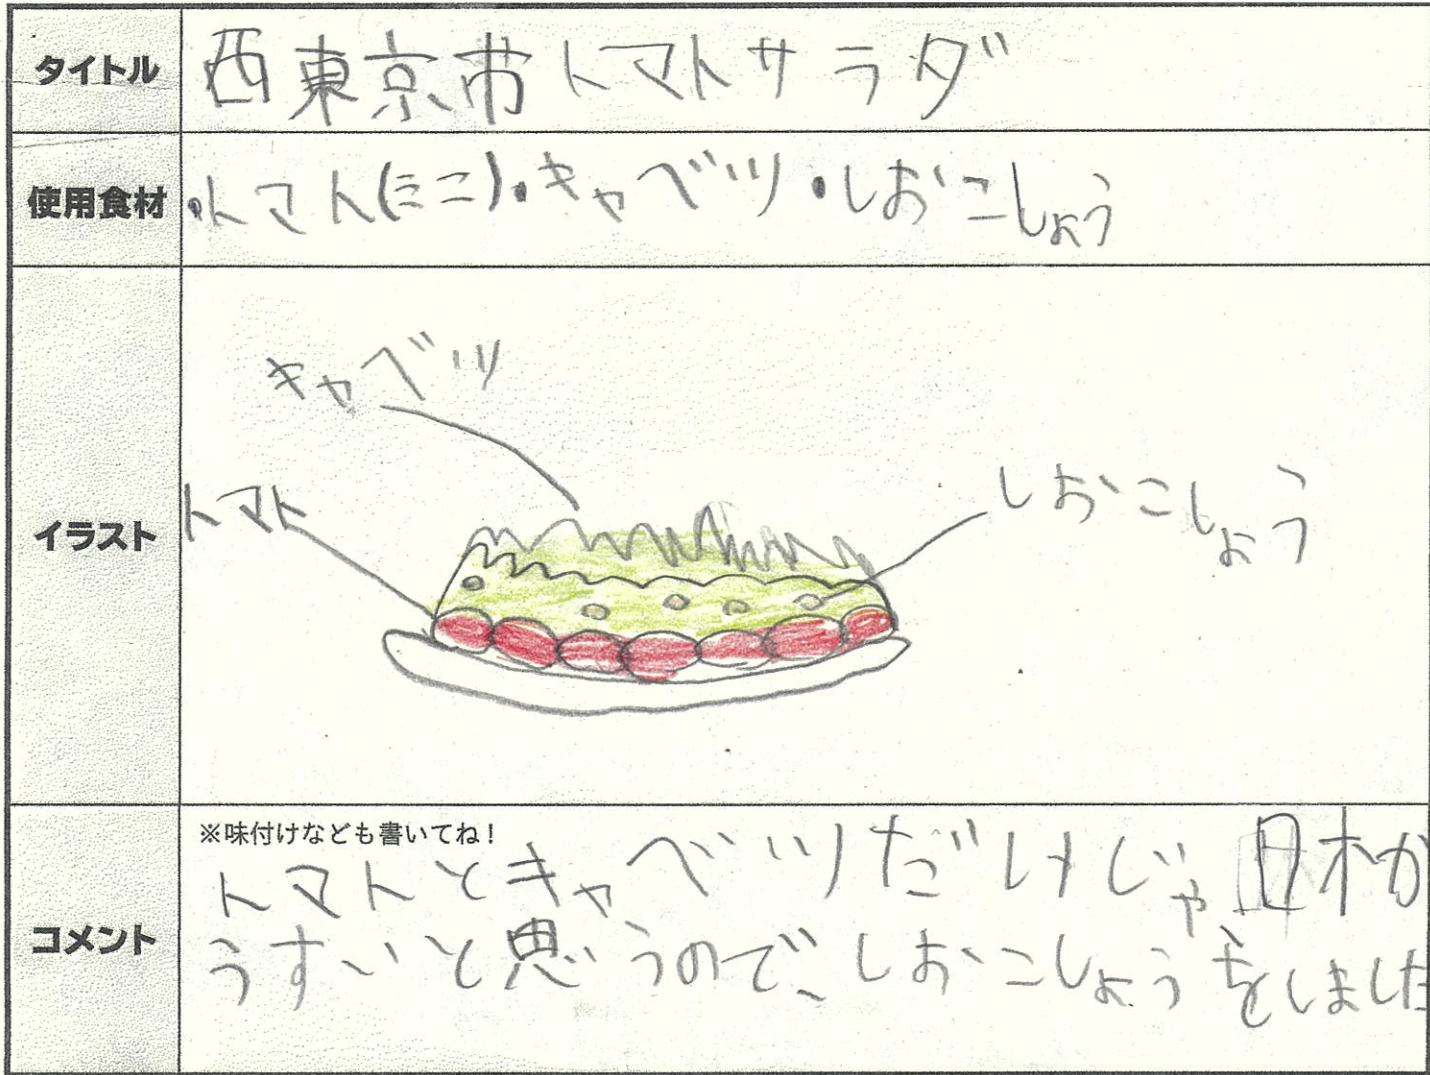 タイトル
西東京市トマトサラダ
使用食材
・トマト(二こ)・キャベツ・しおこしょう
イラスト
キャベツ
トマト
しおこしょう
コメント
※味付けなども書いてね!
トマトとキャベツだけじゃ味が
うすいと思うので、しおこしょうをしました